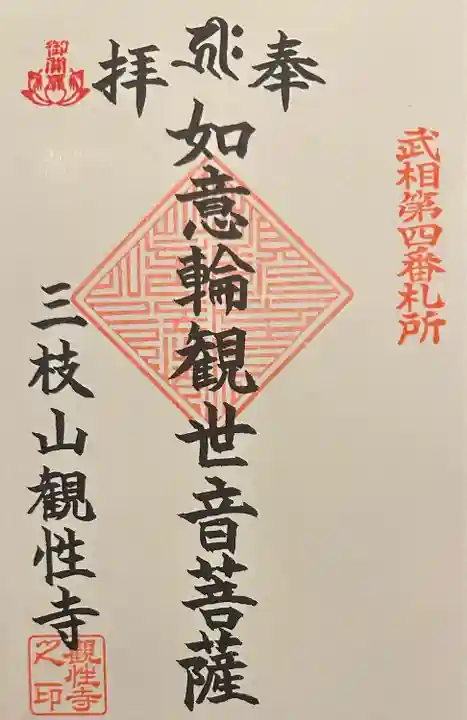 武相第四番札所
奉拝
如意輪観世音菩薩
三枝山観性寺
観性寺之印
御開扉